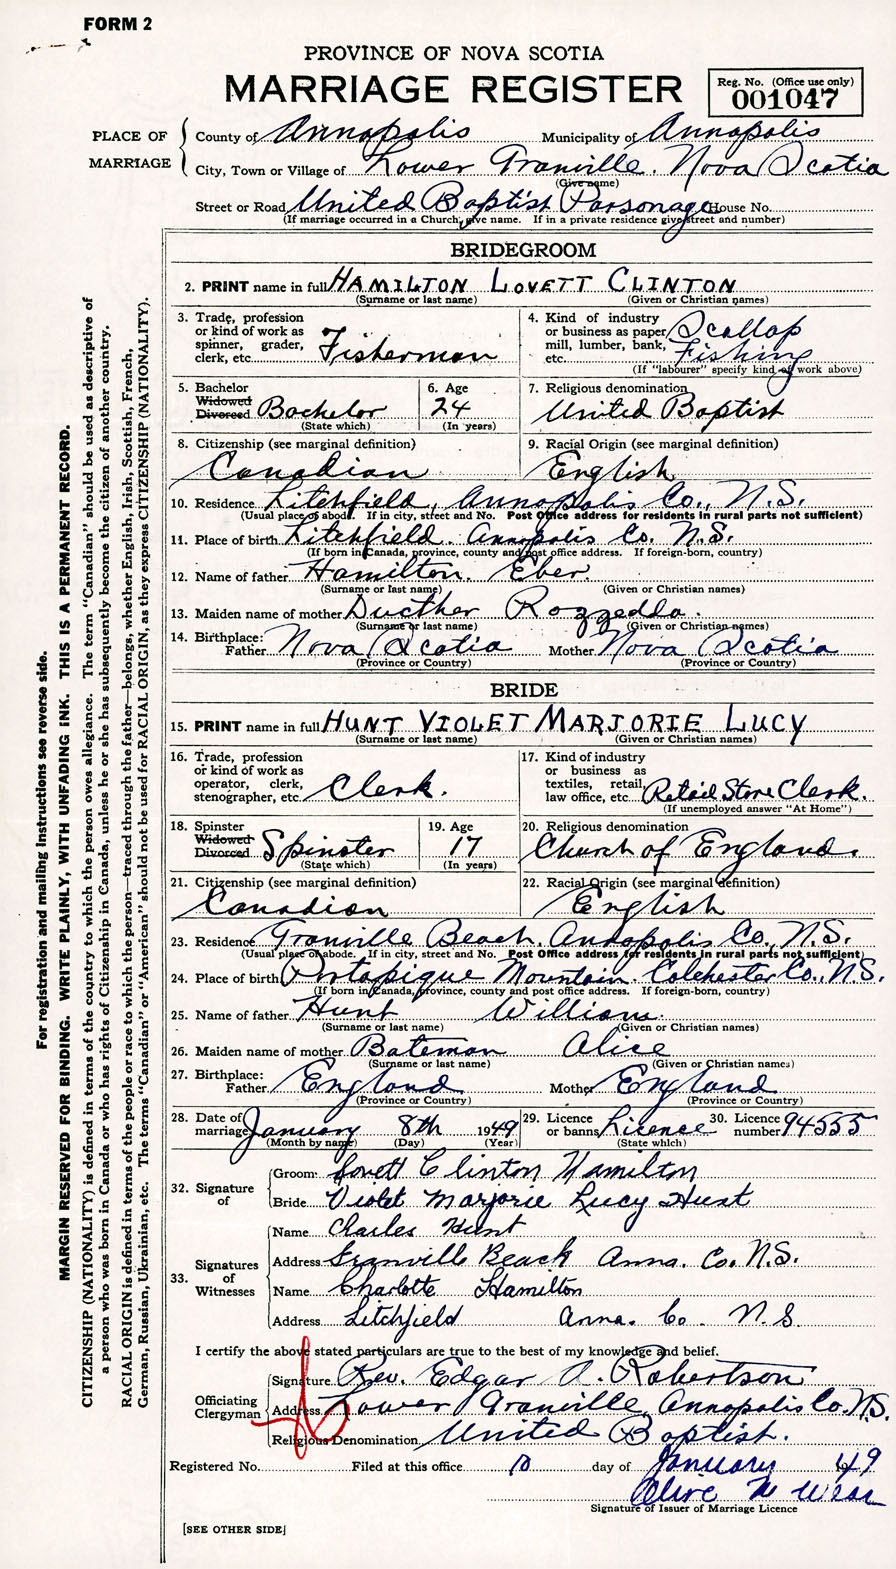 FORM 2
PROVINCE OF NOVA SCOTIA
MARRIAGE REGISTER
Reg. No. (Office use only)
001047
PLACE OF MARRIAGE
County of Annapolis Municipality of Annapolis
City, Town or Village of Lower Granville. Nova Scotia
(Give name)
Street or Road United Baptist Parsonage House No.
(If marriage occurred in a Church, give name. If in a private residence give street and number)
BRIDEGROOM
2. PRINT name in full HAMILTON LOVETT CLINTON
(Surname or last name) (Given or Christian names)
3. Trade, profession or kind of work as spinner, grader, clerk, etc. Fisherman
4. Kind of industry or business as paper mill, lumber, bank, etc. Scallop Fishing
(If "labourer" specify kind of work above)
5. Bachelor Widowed Divorced Bachelor
(State which)
6. Age 24
(In years)
7. Religious denomination
United Baptist
8. Citizenship (see marginal definition)
Canadian
9. Racial Origin (see marginal definition)
English
10. Residence Litchfield, Annapolis Co., N.S.
(Usual place of abode. If in city, street and No. Post Office address for residents in rural parts not sufficient)
11. Place of birth Litchfield. Annapolis Co. N.S.
(If born in Canada, province, county and post office address. If foreign-born, country)
12. Name of father Hamilton. Eber.
(Surname or last name) (Given or Christian names)
13. Maiden name of mother Ducther Rozzedla.
(Surname or last name) (Given or Christian names)
14. Birthplace: Father Nova Scotia Mother Nova Scotia
(Province or Country) (Province or Country)
BRIDE
15. PRINT name in full HUNT VIOLET MARJORIE LUCY
(Surname or last name) (Given or Christian names)
16. Trade, profession or kind of work as operator, clerk, stenographer, etc. Clerk.
17. Kind of industry or business as textiles, retail, law office, etc. Retail Store Clerk.
(If unemployed answer "At Home")
18. Spinster Widowed Divorced Spinster
(State which)
19. Age 17
(In years)
20. Religious denomination
Church of England.
21. Citizenship (see marginal definition)
Canadian
22. Racial Origin (see marginal definition)
English
23. Residence Granville Beach. Annapolis Co., N.S.
(Usual place of abode. If in city, street and No. Post Office address for residents in rural parts not sufficient)
24. Place of birth Portapique Mountain. Colchester Co., N.S.
(If born in Canada, province, county and post office address. If foreign-born, country)
25. Name of father Hunt William.
(Surname or last name) (Given or Christian names)
26. Maiden name of mother Bateman Alice
(Surname or last name) (Given or Christian names)
27. Birthplace: Father England Mother England
(Province or Country) (Province or Country)
28. Date of marriage January 8th 1949
(Month by name) (Day) (Year)
29. Licence or banns Licence
(State which)
30. Licence number 94555
32. Signature of
Groom: Lovett Clinton Hamilton
Bride Violet Marjorie Lucy Hunt
33. Signatures of Witnesses
Name Charles Hunt
Address Granville Beach Anna. Co. N.S.
Name Charlotte Hamilton
Address Litchfield Anna. Co. N.S.
I certify the above stated particulars are true to the best of my knowledge and belief.
Officiating Clergyman
Signature Rev. Edgar A. Robertson
Address Lower Granville, Annapolis Co. N.S.
Religious Denomination United Baptist.
Registered No. Filed at this office 10 day of January 1949
Olive M Wear
Signature of Issuer of Marriage Licence
[SEE OTHER SIDE]
For registration and mailing instructions see reverse side.
MARGIN RESERVED FOR BINDING. WRITE PLAINLY, WITH UNFADING INK. THIS IS A PERMANENT RECORD.
CITIZENSHIP (NATIONALITY) is defined in terms of the country to which the person owes allegiance. The term "Canadian" should be used as descriptive of
a person who was born in Canada or who has rights of Citizenship in Canada, unless he or she has subsequently become the citizen of another country.
RACIAL ORIGIN is defined in terms of the people or race to which the person—traced through the father—belongs, whether English, Irish, Scottish, French,
German, Russian, Ukrainian, etc. The terms "Canadian" or "American" should not be used for RACIAL ORIGIN, as they express CITIZENSHIP (NATIONALITY).